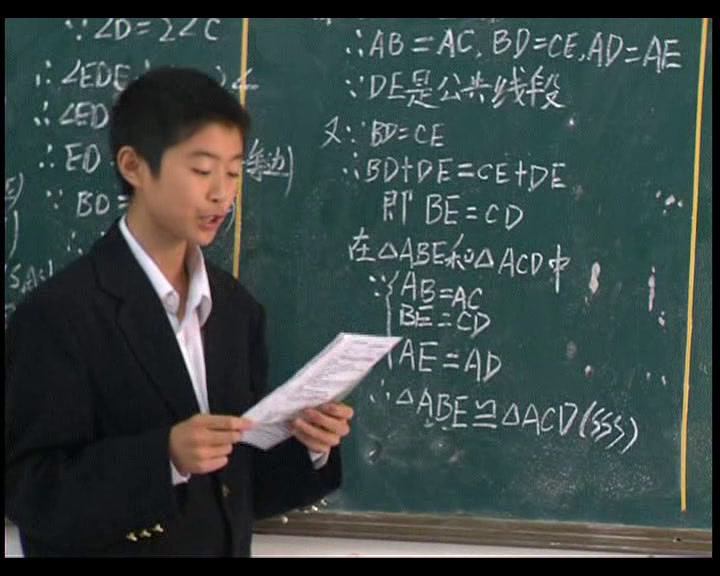 ∵∠D=2∠C
∴∠EDE
∴∠ED
∴ED
∵BD=
∴AB=AC,BD=CE,AD=AE
∵DE是公共线段
又∵BD=CE
∴BD+DE=CE+DE
即BE=CD
在△ABE和△ACD中
∵{AB=AC
BE=CD
AE=AD
∴△ABE≌△ACD(SSS)